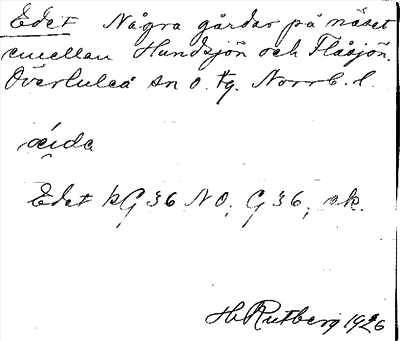 Edet Några gårdar på näset
emellan Hundsjön och Flåsjön.
Överluleå sn o. tg. Norrb. l.
Edet kG 36 NO; G 36; ek.
H. Rutberg 1926